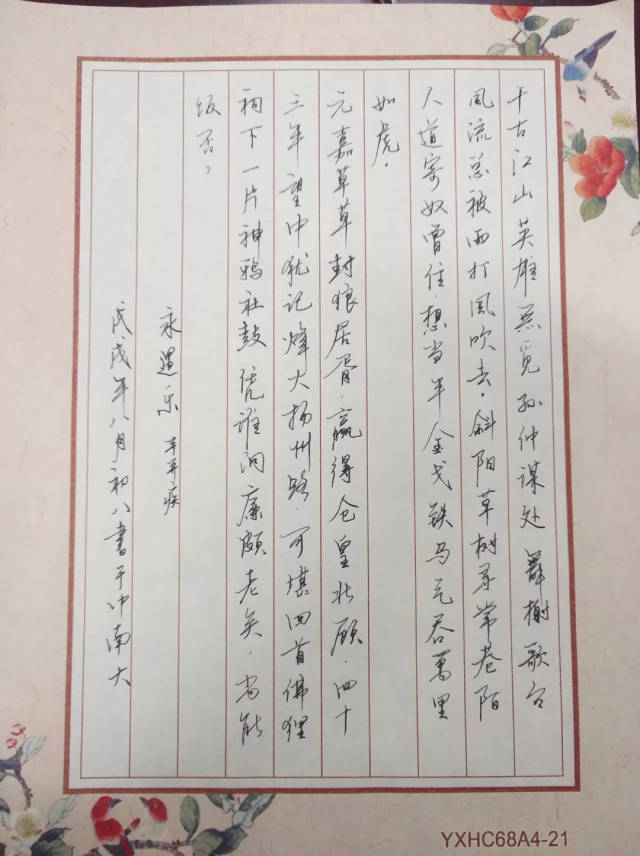 千古江山英雄無覓孙仲谋处舞榭歌台
风流总被雨打风吹去。斜阳草树寻常巷陌
人道寄奴曾住.想当年金戈铁马气吞萬里
如虎.
元嘉草草封狼居胥.赢得仓皇北顾.四十
三年望中犹记烽火扬州路.可堪回首佛狸
祠下一片神鸦社鼓凭谁问廉颇老矣.尚能
饭否?
永遇乐 辛弃疾
戊戌年八月初八書于中南大
YXHC68A4-21